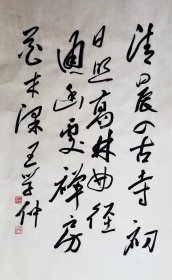 清晨入古寺初
日照高林曲徑
通幽處禪房
花木深王学仲